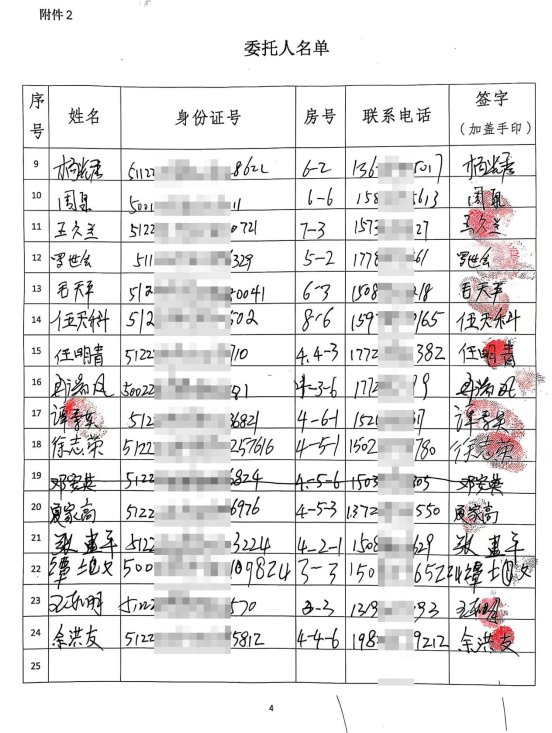 附件2
委托人名单
序号 姓名 身份证号 房号 联系电话 签字（加盖手印）
9 5112 8622 6-2 136 5017
10 周 5001 11 6-6 158 5613 周
11 王久兰 5122 0721 7-3 1573 27 王久兰
12 罗世会 511 329 5-2 1778 61 罗世会
13 毛天平 512 50041 6-3 1508 218 毛天平
14 伍天科 512 502 8-6 159 9165 伍天科
15 任明青 5122 710 4-4-3 1772 382 任明青
16 冉 50022 81 4-3-6 1772 79 冉
17 谭孝英 512 36821 4-6-1 152 17 谭孝英
18 徐志荣 5122 257616 4-5-1 1502 780 徐志荣
19 邓安英 5122 6824 4-5-6 1503 305 邓安英
20 夏家高 5122 6976 4-5-3 1372 550 夏家高
21 张 平 5122 3224 4-2-1 1508 629 张 平
22 谭 500 109824 3-3 150 6522 谭
23 王 5122 570 3-3 1319 93 王
24 余洪友 5122 5812 4-4-6 198 9212 余洪友
25
4